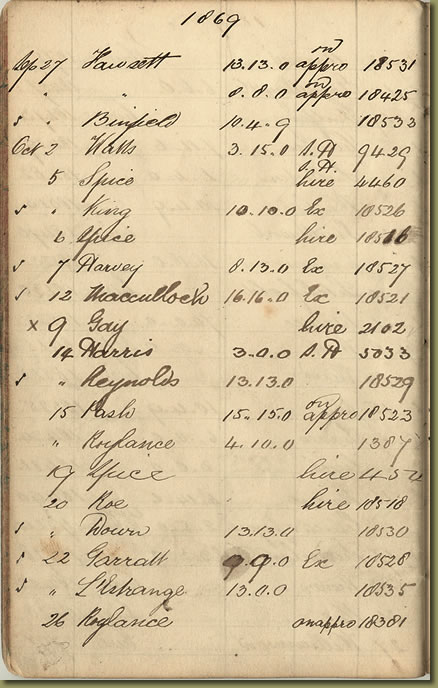 1869
Sep 27 Fawsett 13.13.0 on appro 18531
" " 8.8.0 on appro 18425
s " Binfield 10.4.9 18533
Oct 2 Watts 3.15.0 S.H 9429
5 Spice S.H. hire 4460
s " King 10.10.0 Ex 18526
6 Spice hire
s 7 Harvey 8.13.0 Ex 18527
s 12 Maccullock 16.16.0 Ex 18521
x 9 Gay hire 2102
14 Harris 3.0.0 S.H 5033
s " Reynolds 13.13.0 18529
15 Pash 15.15.0 on appro 18523
" Roylance 4.10.0 1387
19 Spice hire
20 Roe hire 18518
s " Down 13.13.0 18530
s 22 Garratt 9.9.0 Ex 18528
s " L'Estrange 13.0.0 18535
26 Roylance on appro 18381